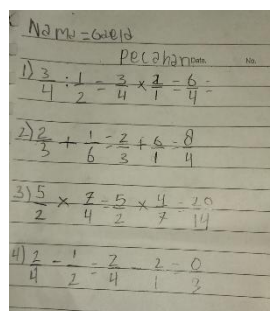 Nama = Gaeld
Pecahan Date. No.
1) 3/4 : 1/2 = 3/4 x 2/1 = 6/4 =
2) 2/3 + 1/6 = 2/3 + 6/1 = 8/4
3) 5/2 x 7/4 = 5/2 x 4/7 = 20/14
4) 2/4 - 1/2 = 2/4 - 2/1 = 0/3